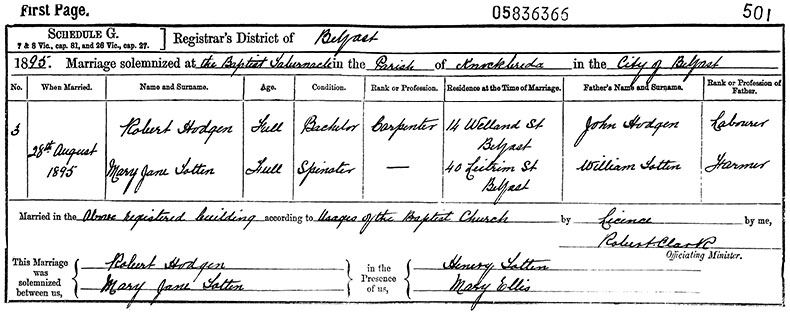 First Page. 05836366 501
SCHEDULE G.
7 & 8 Vic., cap. 81, and 26 Vic., cap. 27.
Registrar's District of Belfast
1895. Marriage solemnized at the Baptist Tabernacle in the Parish of Knockbreda in the City of Belfast
No. When Married. Name and Surname. Age. Condition. Rank or Profession. Residence at the Time of Marriage. Father's Name and Surname. Rank or Profession of Father.
3 28th August 1895
Robert Hodgen Full Bachelor Carpenter 14 Welland St Belfast John Hodgen Labourer
Mary Jane Totten Full Spinster — 40 Leitrim St Belfast William Totten Farmer
Married in the Above registered building according to Usages of the Baptist Church by Licence by me,
Robert Clark
Officiating Minister.
This Marriage was solemnized between us, { Robert Hodgen } in the Presence of us, { Henery Totten }
{ Mary Jane Totten } { Mary Ellis }